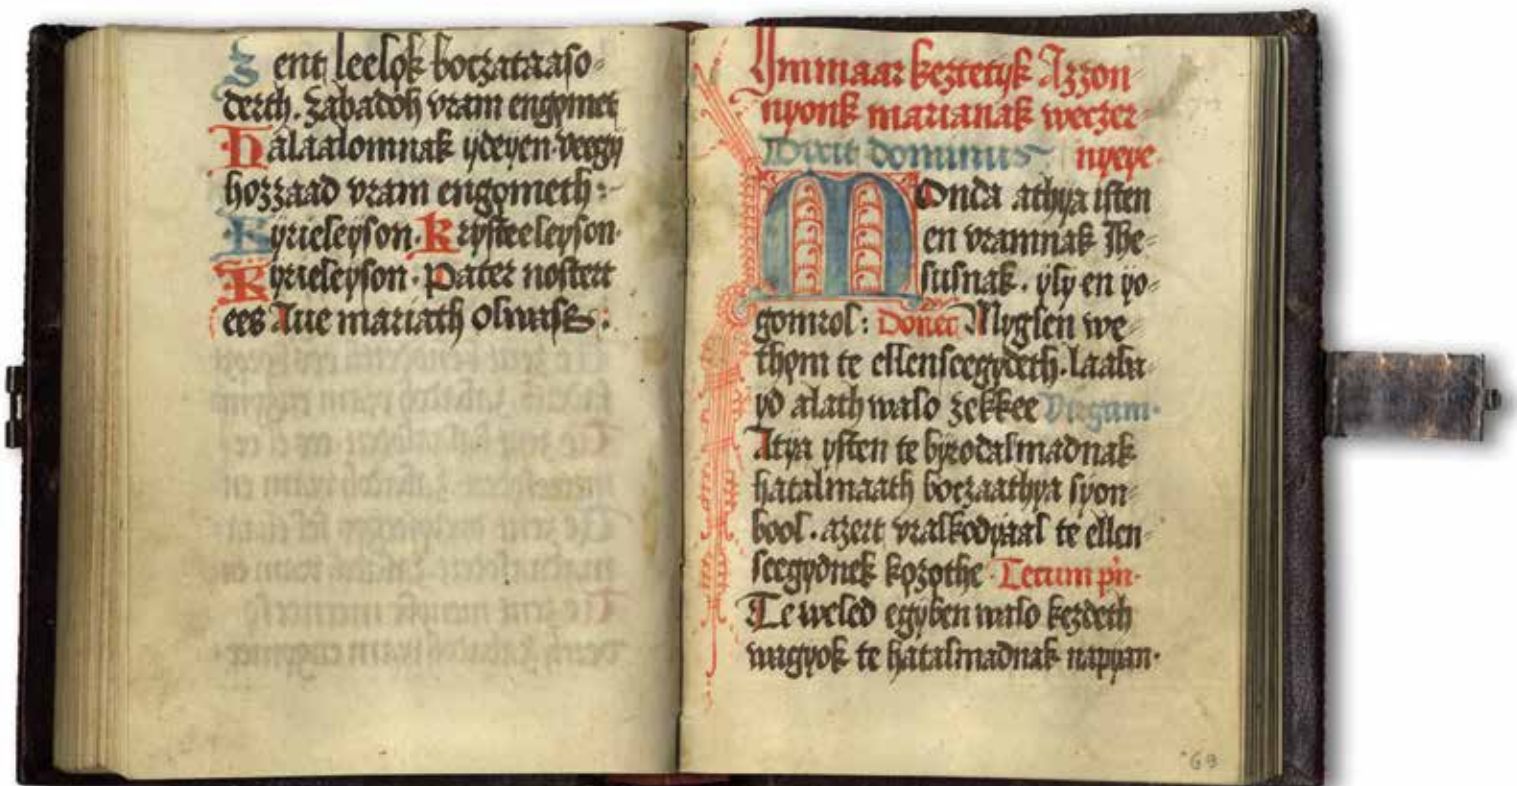 Zent leelok boczataaso-
derth. Zabadoh vram engymet
Halaalomnak ydeyen. veegy
hozzaad vram engometh:
Kyrieleyson. Krysteeleyson.
Kyrieleyson. Pater nostert
ees Aue mariath
Immaar kezteтyk Azzon-
nyonk marianak weczer-
Dixit dominus nyeye.
Monda athya isten
en vramnak Ihe-
susnak. yly en yo-
gomrol: Donec Myglen we-
thom te ellenseegydeth. laaba-
yd alath walo zekkee Virgam.
Atya ysten te byrodalmadnak
hatalmaath boczaathya syon-
bool. azert vralkodyaal te ellen-
seegydnek kozothe. Tecum prin.
Te weled egyben walo kezdeth
vagyok te hatalmadnak napyan.
69